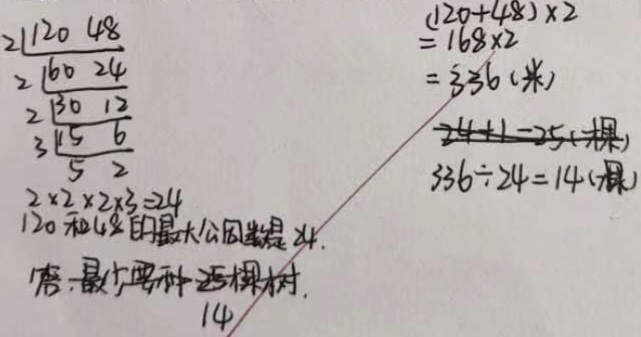 2 120 48
2 60 24
2 30 12
3 15 6
5 2
2×2×2×3=24
120和48的最大公因数是24.
答:最少要种25棵树.
14
(120+48)×2
=168×2
=336(米)
24+1=25(棵)
336÷24=14(棵)